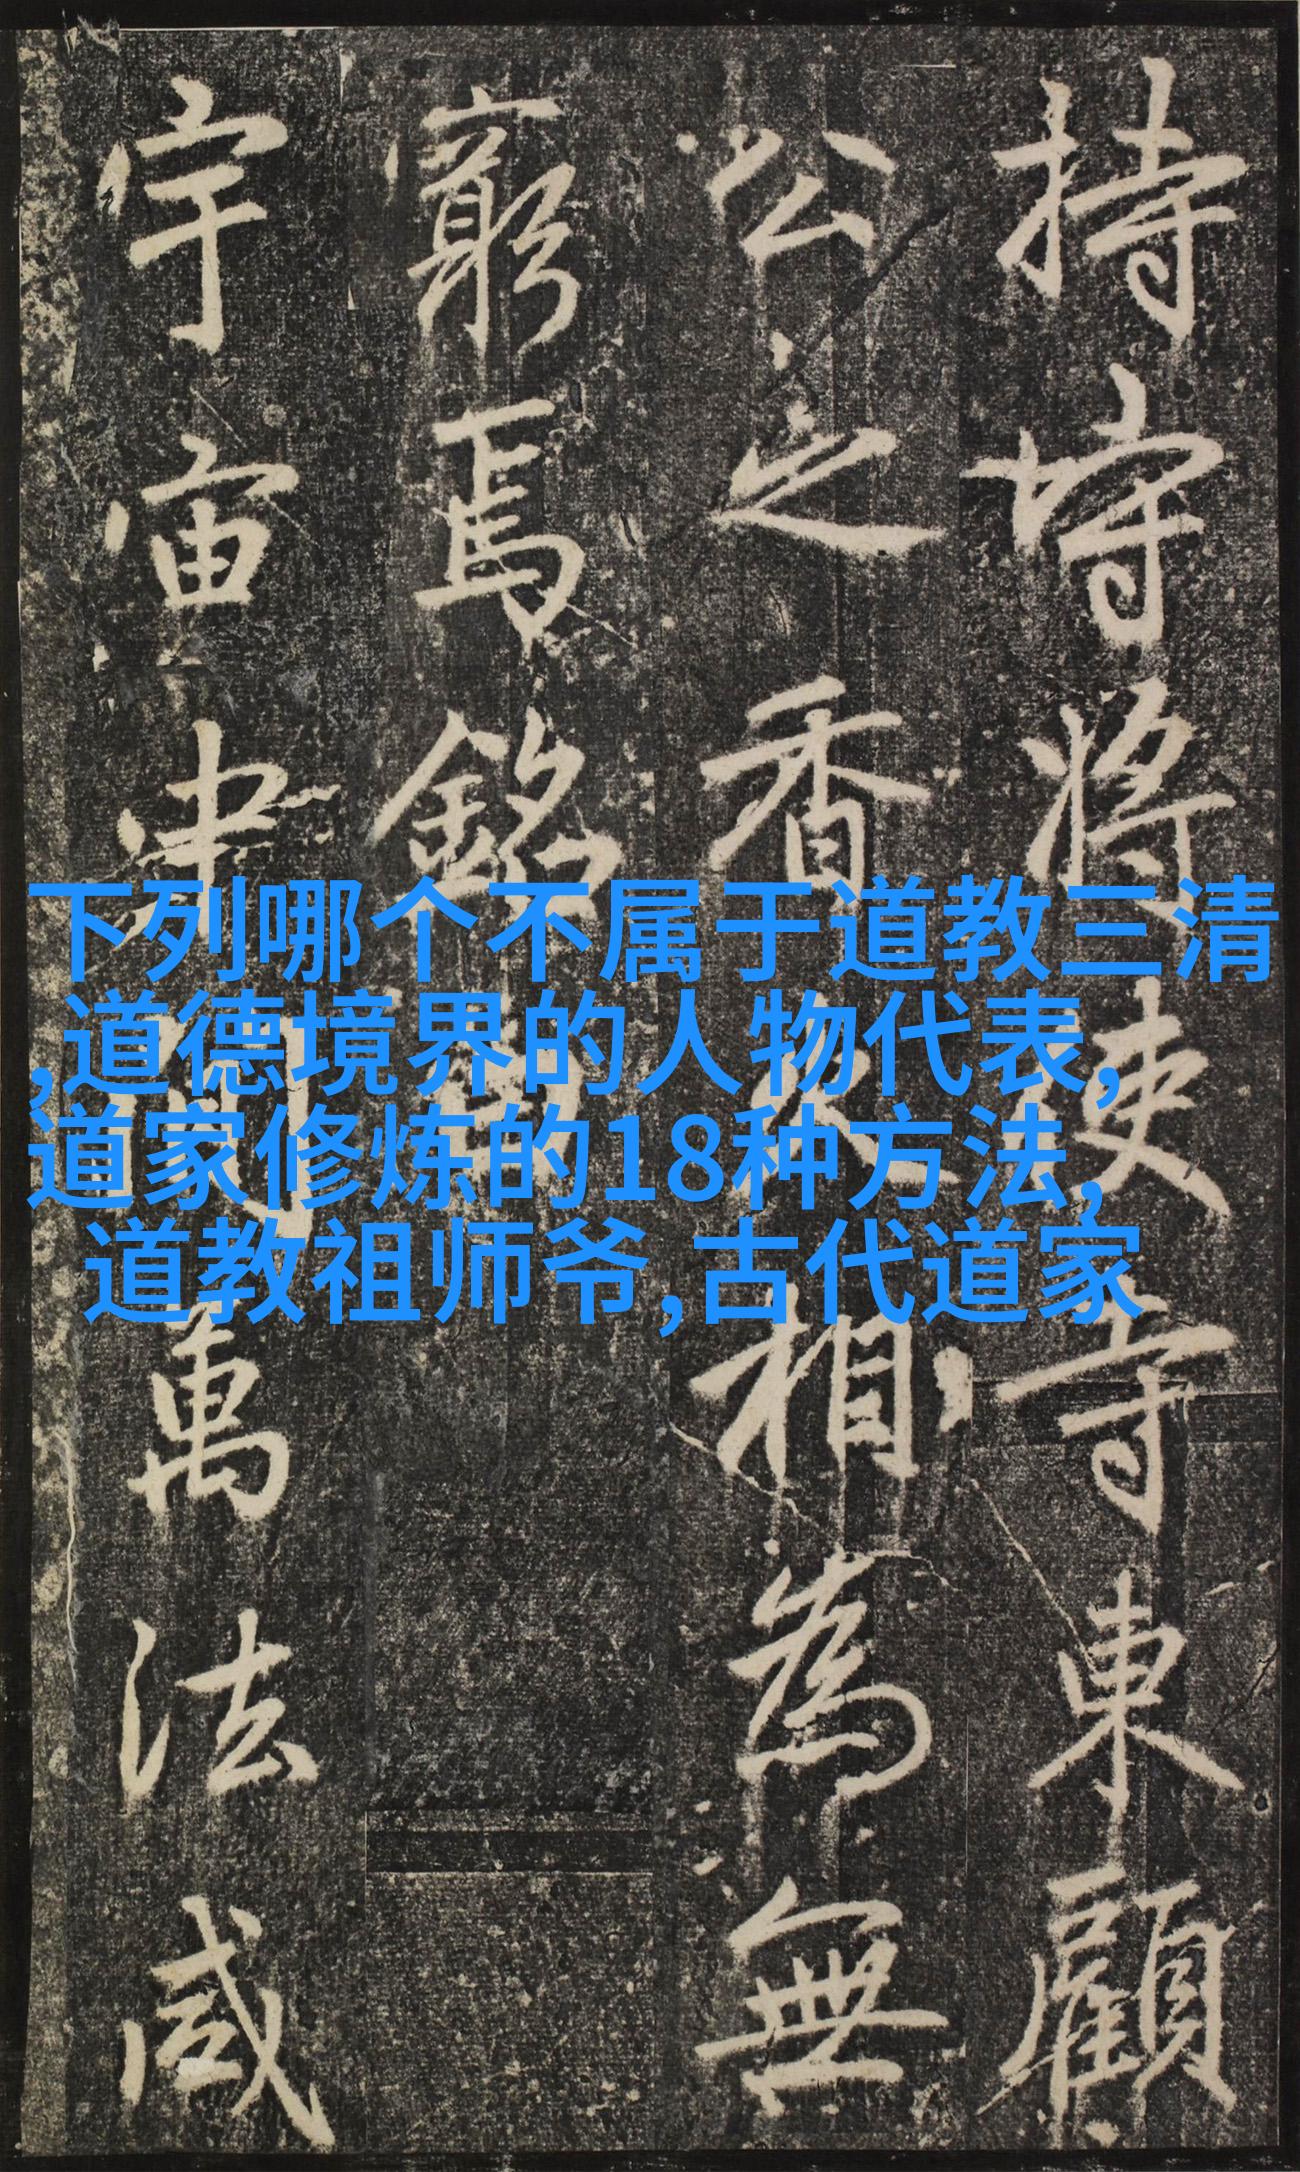 持將使寺東顧
公之香火相為無
窮焉銘
宇宙萬法咸
下列哪个不属于道教三清
,道德境界的人物代表,
道家修炼的18种方法,
道教祖师爷,古代道家